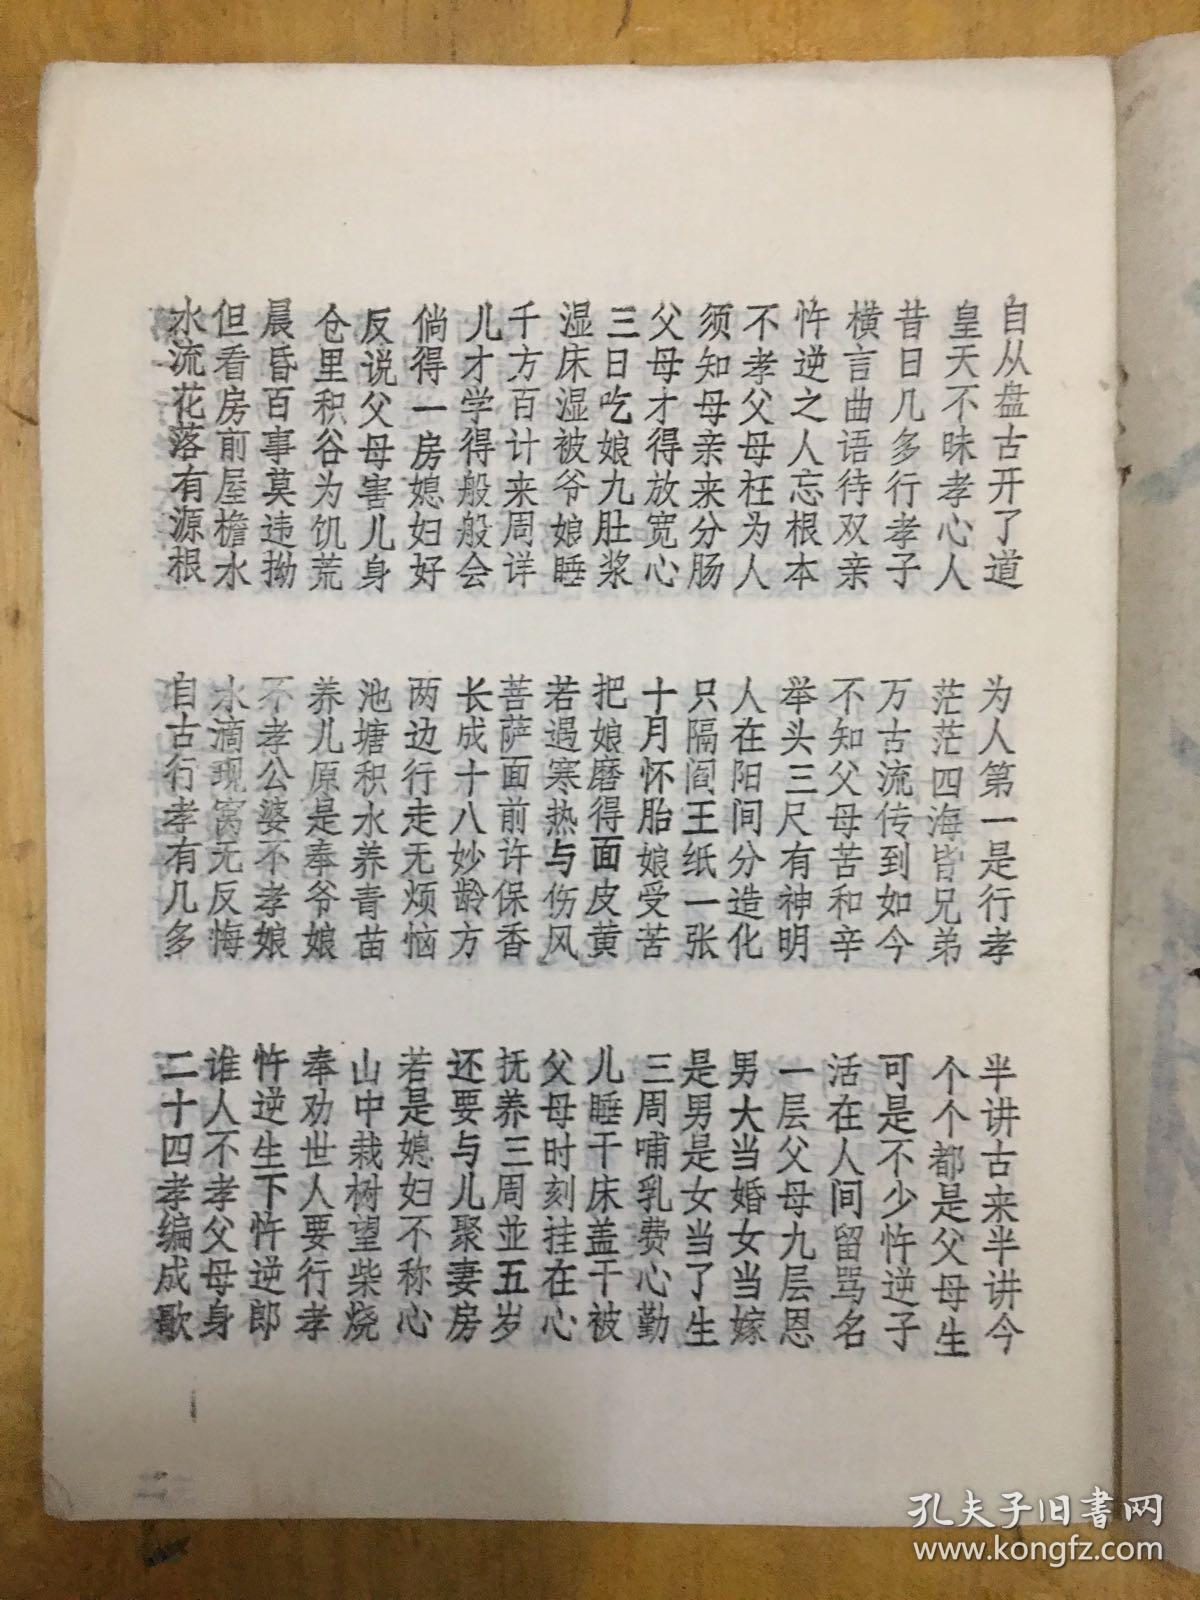 自从盘古开了道 为人第一是行孝 半讲古来半讲今
皇天不昧孝心人 茫茫四海皆兄弟 个个都是父母生
昔日几多行孝子 万古流传到如今 可是不少忤逆子
横言曲语待双亲 不知父母苦和辛 活在人间留骂名
忤逆之人忘根本 举头三尺有神明 一层父母九层恩
不孝父母枉为人 人在阳间分造化 男大当婚女当嫁
须知母亲来分肠 只隔阎王纸一张 是男是女当了生
父母才得放宽心 十月怀胎娘受苦 三周哺乳费心勤
三日吃娘九肚浆 把娘磨得面皮黄 儿睡干床盖干被
湿床湿被爷娘睡 若遇寒热与伤风 父母时刻挂在心
千方百计来周详 菩萨面前许保香 抚养三周並五岁
儿才学得般般会 长成十八妙龄方 还要与儿聚妻房
倘得一房媳妇好 两边行走无烦恼 若是媳妇不称心
反说父母害儿身 池塘积水养青苗 山中栽树望柴烧
仓里积谷为饥荒 养儿原是奉爷娘 奉劝世人要行孝
晨昏百事莫违拗 不孝公婆不孝娘 忤逆生下忤逆郎
但看房前屋檐水 水滴现窝无反悔 谁人不孝父母身
水流花落有源根 自古行孝有几多 二十四孝编成歌
一
二
孔夫子旧书网
www.kongfz.com